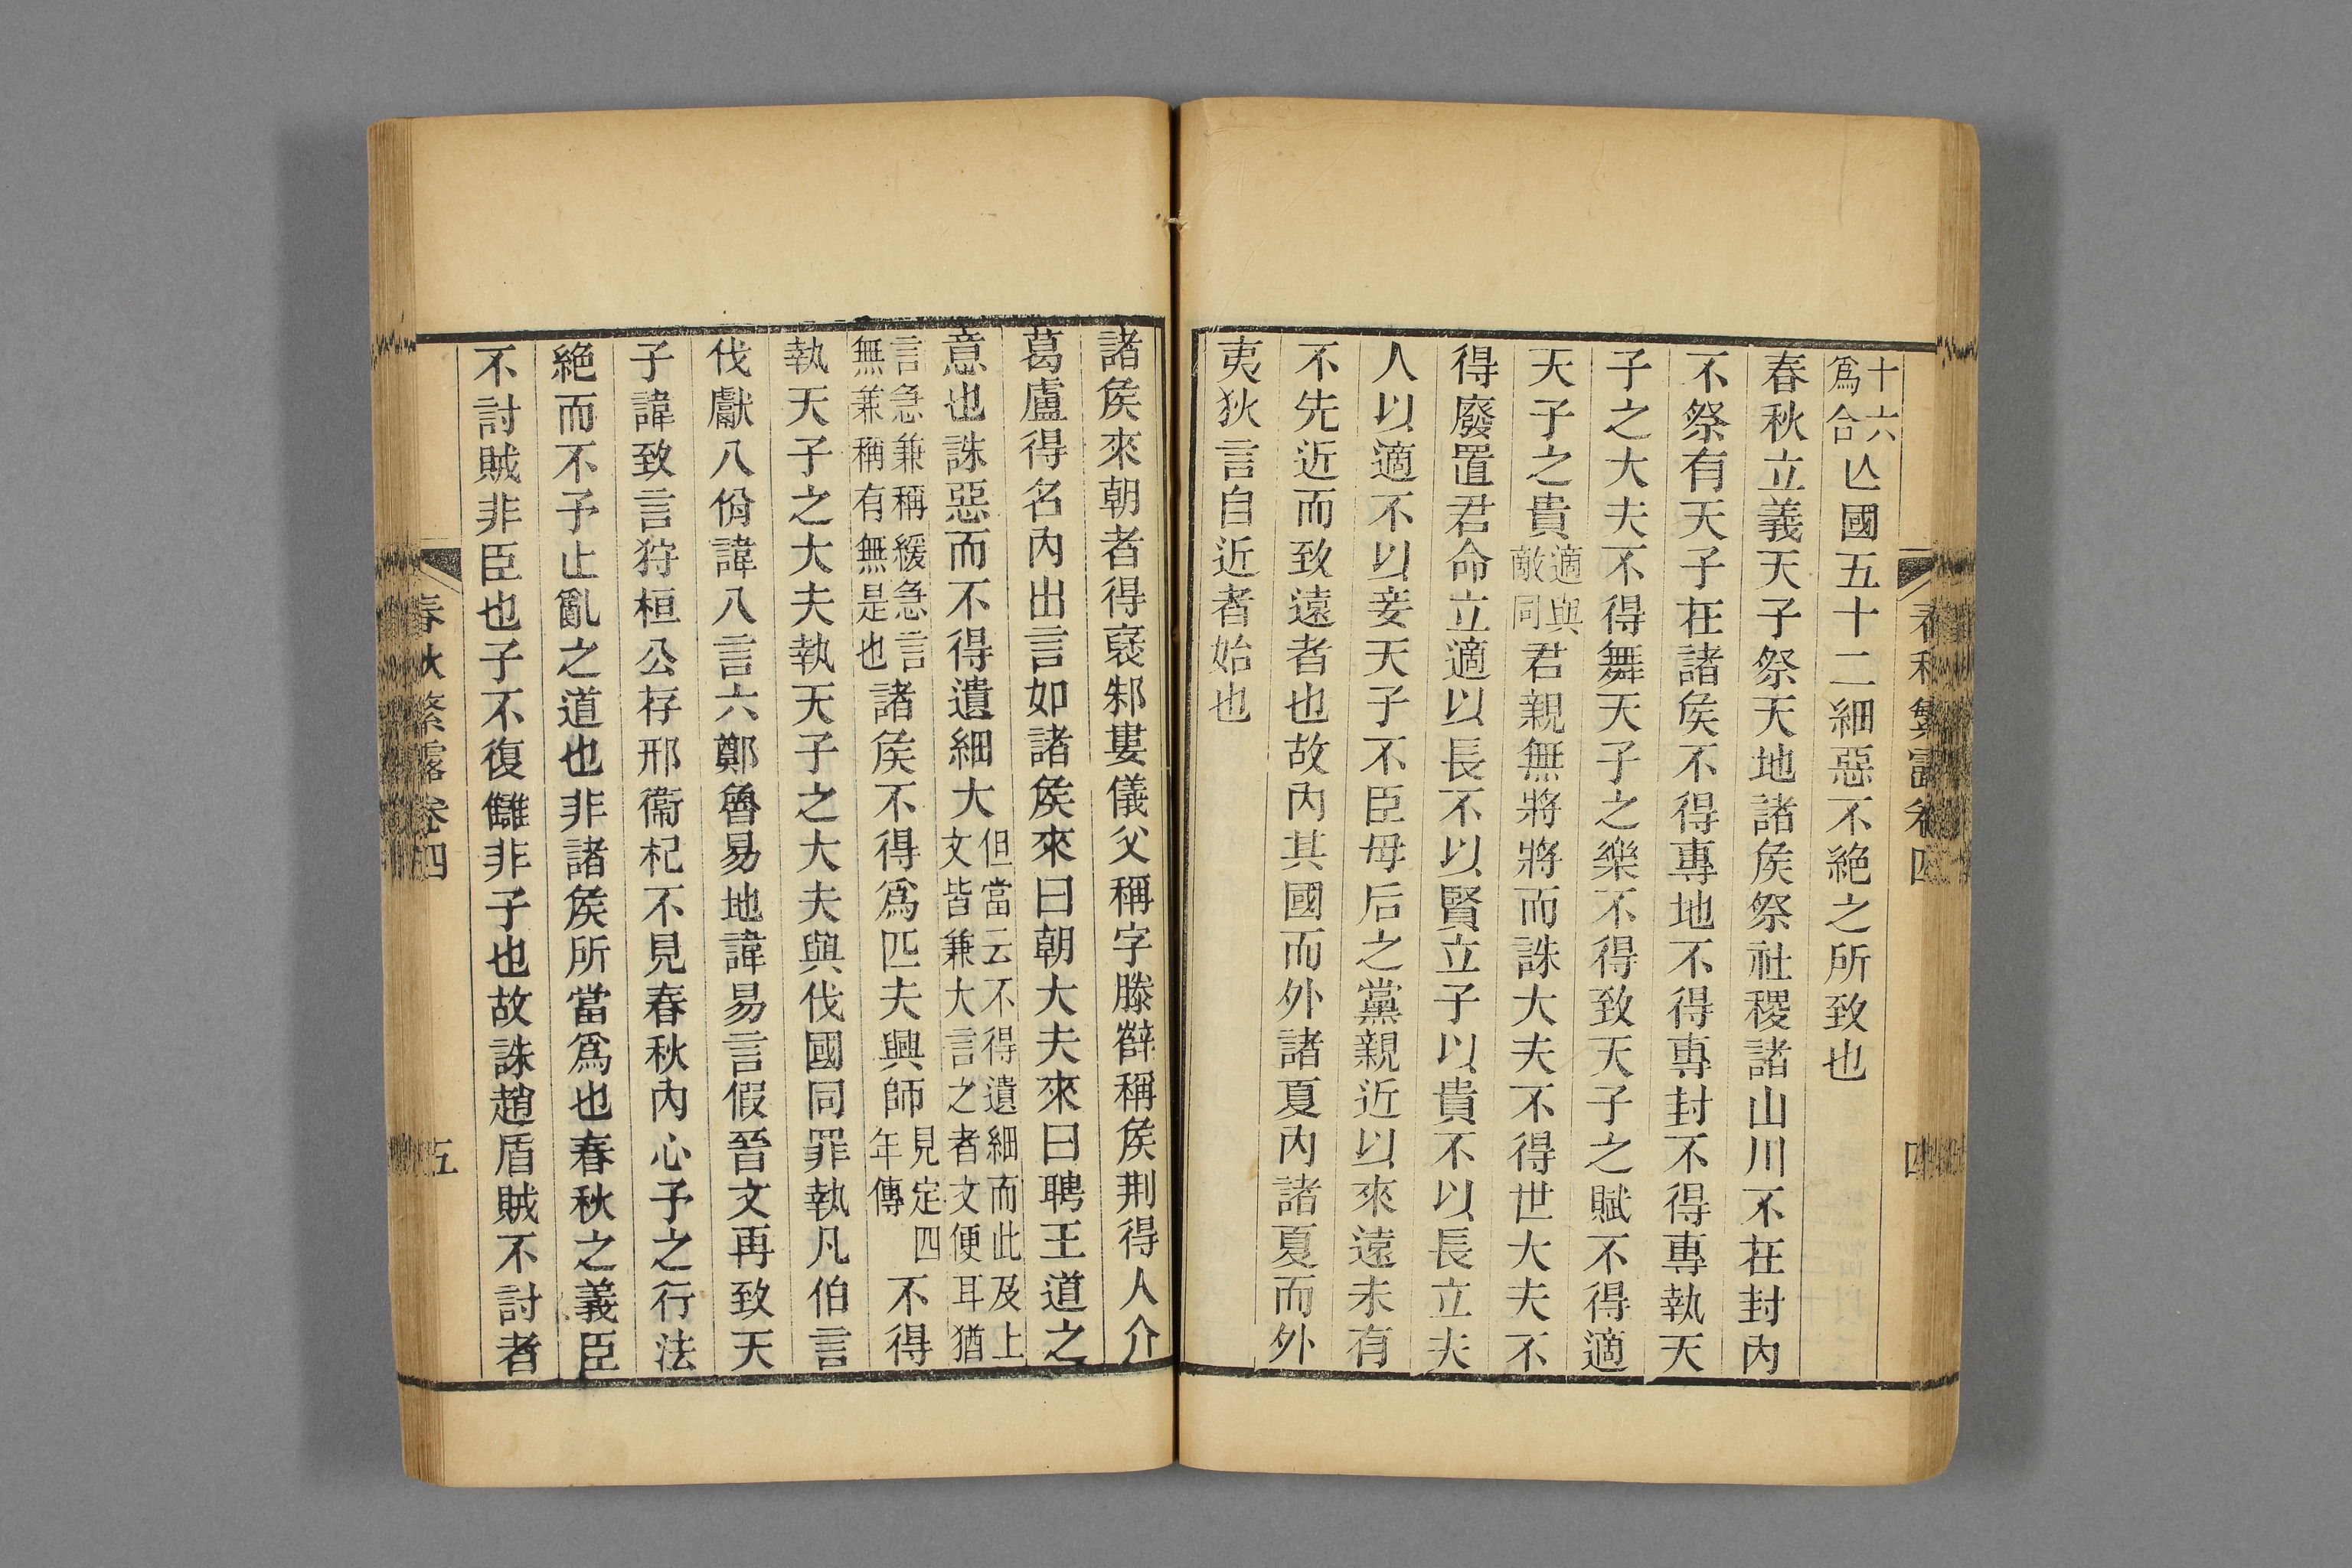 十六爲合亾國五十二細惡不絶之所致也
春秋立義天子祭天地諸矦祭社稷諸山川不在封內
不祭有天子在諸矦不得專地不得專封不得專執天
子之大夫不得舞天子之樂不得致天子之賦不得適
天子之貴適與敵同君親無將將而誅大夫不得世大夫不
得廢置君命立適以長不以賢立子以貴不以長立夫
人以適不以妾天子不臣母后之黨親近以來遠未有
不先近而致遠者也故內其國而外諸夏內諸夏而外
夷狄言自近者始也
諸矦來朝者得襃邾婁儀父稱字滕薛稱矦荆得人介
葛盧得名內出言如諸矦來曰朝大夫來曰聘王道之
意也誅惡而不得遺細大但當云不得遺細而此及上文皆兼大言之者文便耳猶
言急兼稱緩急言無兼稱有無是也諸矦不得爲匹夫興師見定四年傳不得
執天子之大夫執天子之大夫與伐國同罪執凡伯言
伐獻八佾諱八言六鄭魯易地諱易言假晉文再致天
子諱致言狩桓公存邢衞杞不見春秋內心予之行法
絶而不予止亂之道也非諸矦所當爲也春秋之義臣
不討賊非臣也子不復讎非子也故誅趙盾賊不討者
春秋繁露卷四
五